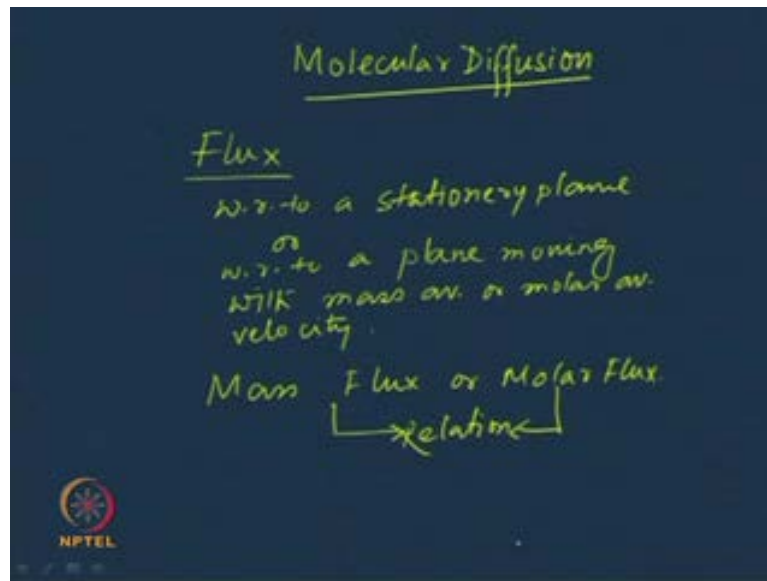 Molecular Diffusion
Flux
w.r.to a stationery plane
or
w.r.to a plane moving
with mass av. or molar av.
velocity.
Mass Flux or Molar Flux.
Relation
NPTEL